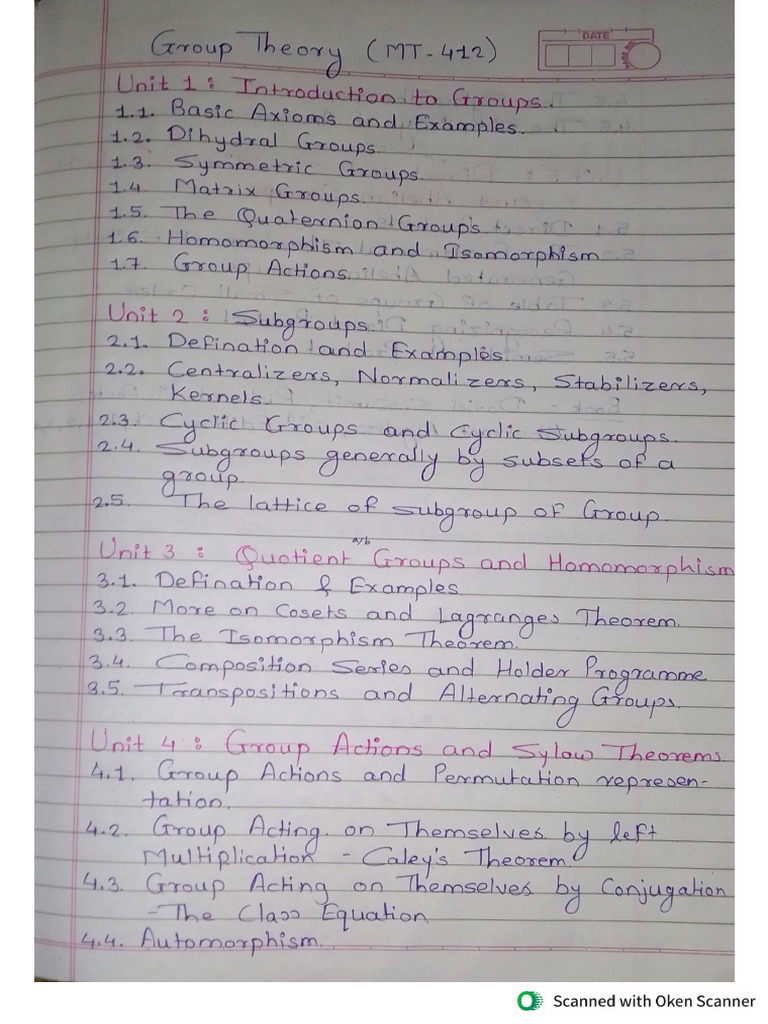 Group Theory (MT-412)
DATE
Unit 1: Introduction to Groups.
1.1. Basic Axioms and Examples.
1.2. Dihydral Groups.
1.3. Symmetric Groups.
1.4 Matrix Groups.
1.5. The Quaternion Groups.
1.6. Homomorphism and Isomorphism
1.7. Group Actions.
Unit 2: Subgroups.
2.1. Defination and Examples.
2.2. Centralizers, Normalizers, Stabilizers,
Kernels.
2.3. Cyclic Groups and Cyclic Subgroups.
2.4. Subgroups generally by subsets of a
group.
2.5. The lattice of subgroup of Group.
a/b
Unit 3: Quotient Groups and Homomorphism
3.1. Defination & Examples.
3.2. More on Cosets and Lagranges Theorem.
3.3. The Isomorphism Theorem.
3.4. Composition Series and Holder Programme
3.5. Transpositions and Alternating Groups.
Unit 4: Group Actions and Sylow Theorems.
4.1. Group Actions and Permutation represen-
tation.
4.2. Group Acting on Themselves by left
Multiplication - Caley's Theorem.
4.3. Group Acting on Themselves by Conjugation
-The Class Equation
4.4. Automorphism.
Scanned with Oken Scanner